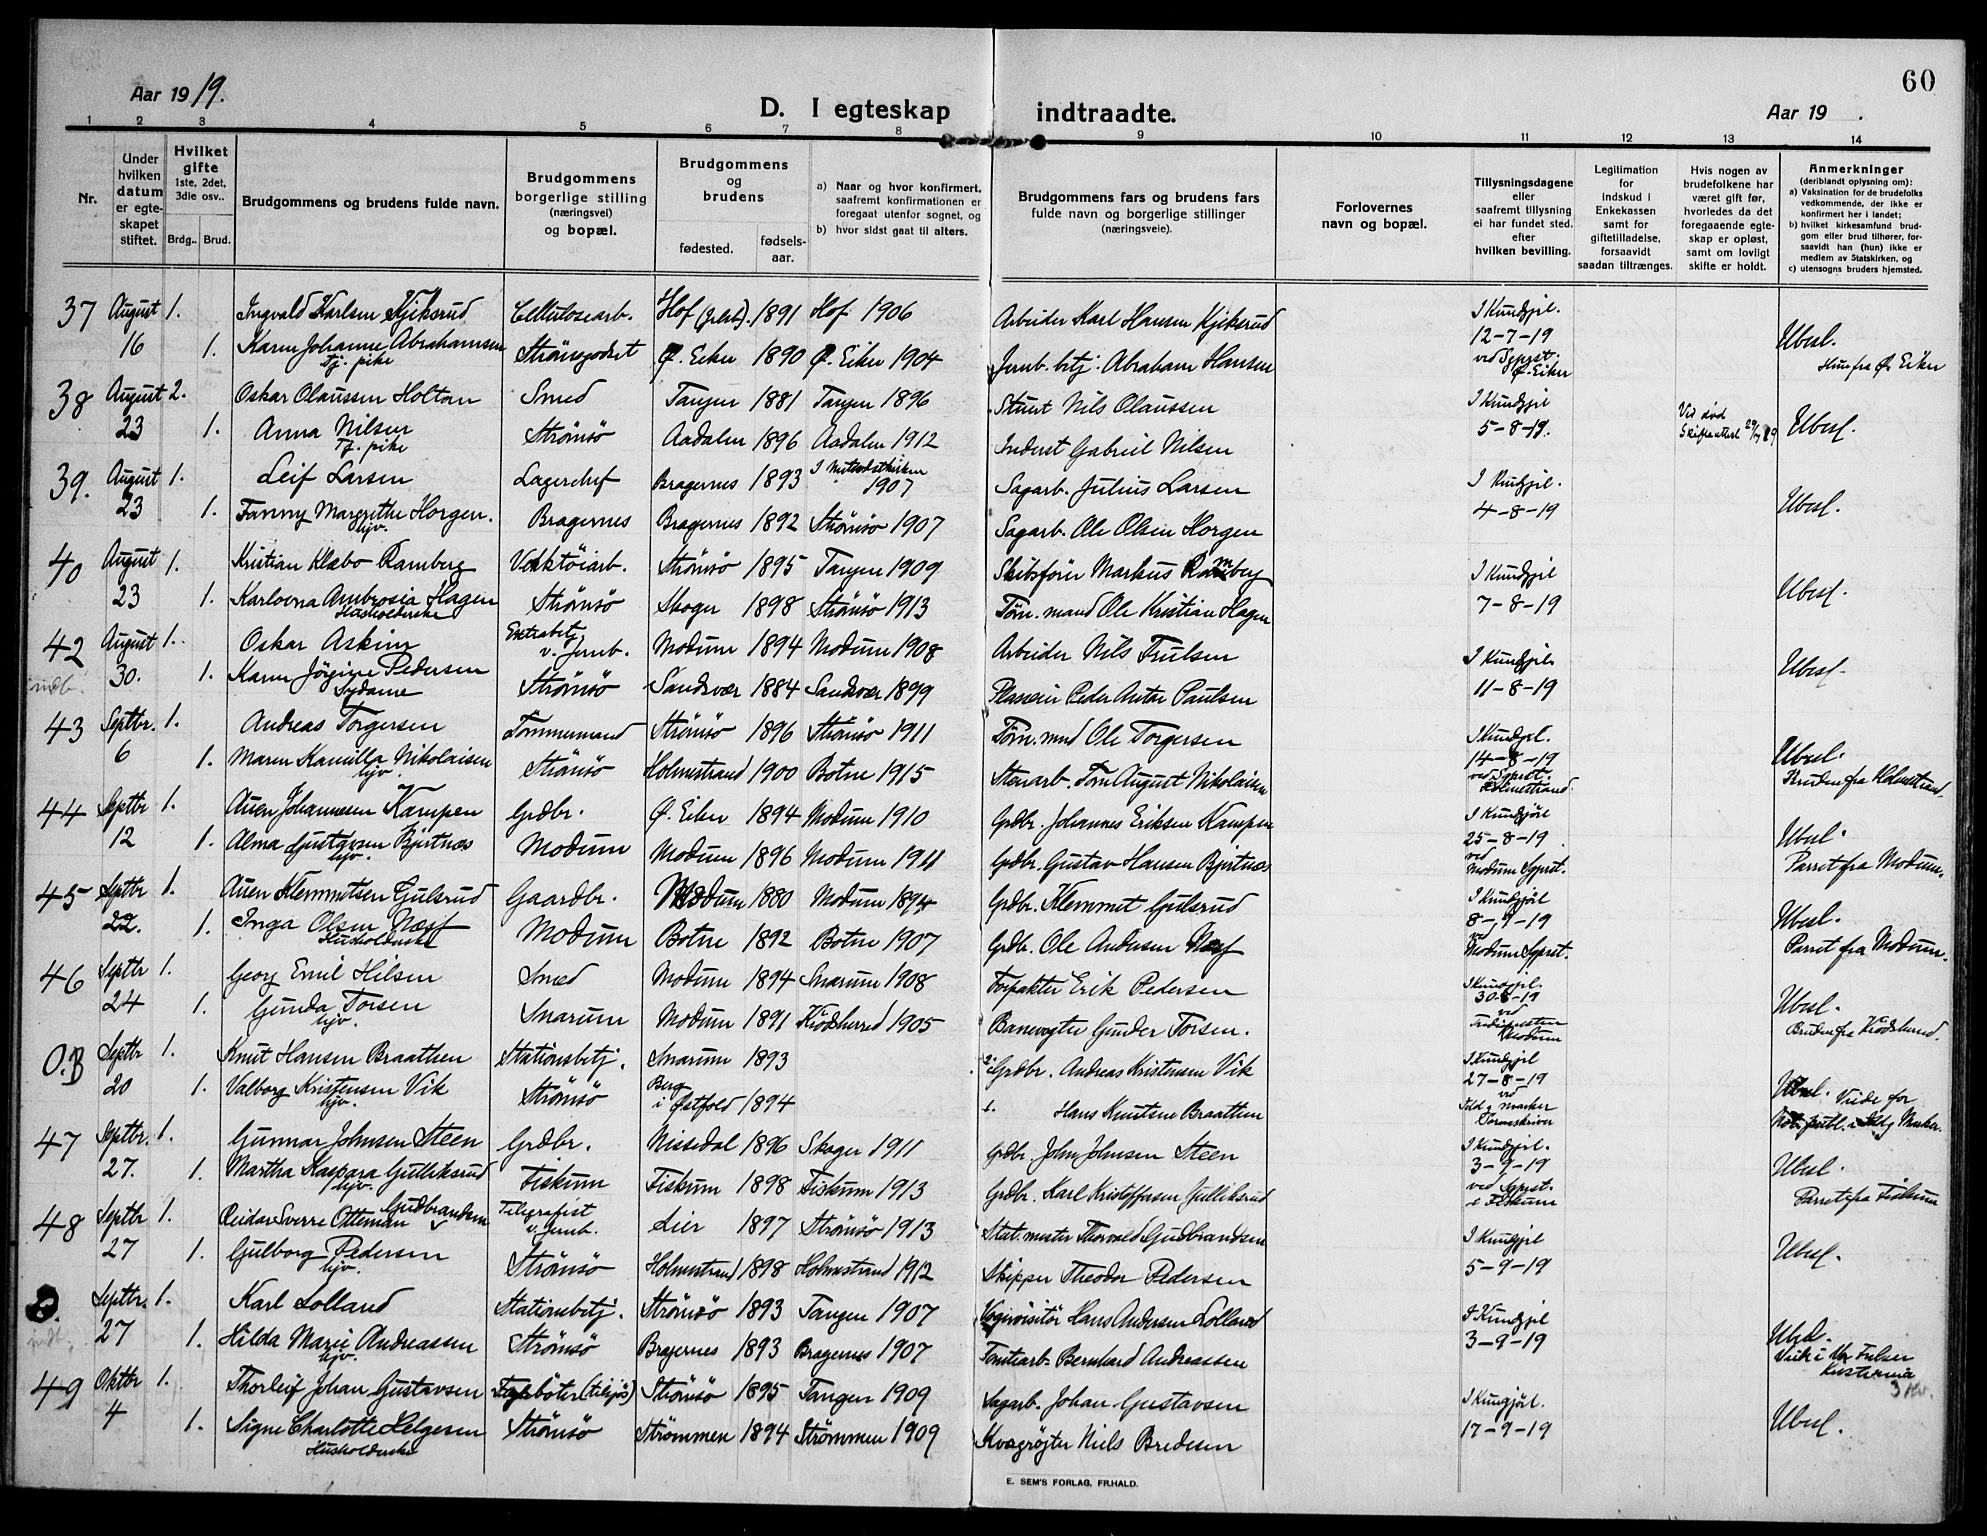 60
Aar 1919.
D. I egteskap indtraadte.
Aar 19 .
1 2 3 4 5 6 7 8 9 10 11 12 13 14
Nr.
Under hvilken datum er egteskapet stiftet.
Hvilket gifte 1ste, 2det, 3die osv.. Brdg.. Brud.
Brudgommens og brudens fulde navn.
Brudgommens borgerlige stilling (næringsvei) og bopæl.
Brudgommens og brudens fødested. fødselsaar.
a) Naar og hvor konfirmert, saafremt konfirmationen er foregaat utenfor sognet, og
b) hvor sidst gaat til alters.
Brudgommens fars og brudens fars fulde navn og borgerlige stillinger (næringsveie).
Forlovernes navn og bopæl.
Tillysningsdagene eller saafremt tillysning ei har fundet sted, efter hvilken bevilling.
Legitimation for indskud i Enkekassen samt for giftetilladelse, forsaavidt saadan tiltrænges.
Hvis nogen av brudefolkene har været gift før, hvorledes da det foregaaende egteskap er opløst, samt om lovligt skifte er holdt.
Anmerkninger (deriblandt oplysning om):
a) Vaksination for de brudefolks vedkommende, der ikke er konfirmert her i landet;
b) hvilket kirkesamfund brudgom eller brud tilhører, forsaavidt han (hun) ikke er medlem av Statskirken, og
c) utensogns bruders hjemsted.
37 August 1. Ingvald Karlsen Kjeksrud Cellulosearb. Hof (Jrlsb). 1891 Hof 1906 Arbeider Karl Hansen Kjeksrud I Kundgjil. 12-7-19 Ubesl.
16 1. Karen Johanne Abrahamsen Tj. pike Strömsgodset Ø. Eiker 1890 Ø. Eiker 1904 Jernb. betj. Abraham Hansen ved Sgprst. Ø. Eiker Hun fra Ø. Eiker
38 August 2. Oskar Olaussen Holtan Smed Tangen 1881 Tangen 1896 Stuert Nils Olaussen I Kundgjil 5-8-19. Ved død Ubesl.
23 1. Anna Nilsen Tj. pike Strömsö Aadalen 1896 Aadalen 1912 Inderst Gabriel Nilsen
39. August 1. Leif Larsen Lagerchef Bragernes 1893 I Metodistkirken 1907 Sagarb. Julius Larsen I Kundgjil. 4-8-19 Ubesl.
23 1. Fanny Margrethe Horgen. hjv. Bragernes Bragernes 1892 Strömsö 1907 Sagarb. Ole Olsen Horgen
40 August 1. Kristian Klæbo Ramberg Verktöiarb. Strömsö 1895 Tangen 1909 Skibsfører Markus Ramberg I Kundgjil 7-8-19 Ubesl.
23 1. Karlovna Ambrosia Hagen Husholderske Strömsö Skoger 1898 Strömsö 1913 Tøm. mand Ole Kristian Hagen
42 August 1. Oskar Askim Extrabetj. v. Jernb. Modum 1894 Modum 1908 Arbeider Nils Trulsen I Kundgjil. 11-8-19 Ubesl.
indb. 30. 1. Karen Jörgine Pedersen Sydame Strömsö Sandsvær 1884 Sandsvær 1899 Plasseier Peder Anton Paulsen
43 Septbr. 1. Andreas Torgersen Tömmermand Strömsö 1896 Strömsö 1911 Töm. mnd Ole Torgersen I Kundgjl. 14-8-19 Ubesl.
6 1. Maren Kamilla Nikolaisen hjv. Strömsö Holmestrand 1900 Botne 1915 Stenarb. Tom August Nikolaisen ved Sgprst. Holmestrand. Bruden fra Holmestrand.
44 Septbr 1. Auen Johannesen Kampen Grdbr. Ø. Eiker 1894 Modum 1910 Grdbr. Johannes Eriksen Kampen I Kundgjöl 25-8-19 Ubesl.
12 1. Alma Gustavsen Bjertnæs hjv. Modum Modum 1896 Modum 1911 Grdbr. Gustav Hansen Bjertnæs ved Modum Sgprst. Parret fra Modum.
45 Septbr 1. Auen Klemmetsen Gulsrud Gaardbr. Modum 1880 Modum 1894 Grdbr. Klemmet Gulsrud I Kundgjöl 8-9-19 Ubesl.
22. 1. Inga Olsen Næss Husholderske Modum Botne 1892 Botne 1907 Grdbr. Ole Andersen Næss ved Modum Sgprst. Parret fra Modum.
46 Septbr 1. Georg Emil Hilsen Smed Modum 1894 Snarum 1908 Forpakter Erik Pedersen I Kundgjil. 30-8-19 Ubesl.
24 1. Gunda Torsen hjv. Snarum Modum 1891 Krödsherred 1905 Banevogter Gunder Torsen. ved Modum Bruden fra Krödsherred.
O.B Septbr 1. Knut Hansen Braathen Stationsbetj. Snarum 1893 2. Grdbr. Andreas Kristensen Vik I Kundgjil 27-8-19
20 1. Valborg Kristensen Vik hjv. Strömsö Berg i Østfold 1894 1. Hans Knutsen Braathen ved Idd & Marker Sorenskriver Ubesl. Viede for Not. publ. i Idd & Marker.
47 Septbr. 1. Gunnar Johnsen Steen Grdbr. Nissedal 1896 Skoger 1911 Grdbr. John Johnsen Steen I Kundgjöl. 3-9-19 Ubesl.
27. 1. Martha Kaspara Gulliksrud hjv. Fiskum Fiskum 1898 Fiskum 1913 Grdbr. Karl Kristoffersen Gulliksrud ved Sgprst. i Fiskum Parret fra Fiskum
48 Septbr 1. Reidar Sverre Otteman Gudbrandsen Telegrafist v. Jernb. Lier 1897 Strömsö 1913 Stat. mester Thorvald Gudbrandsen I Kundgjil 5-9-19 Ubesl.
27 1. Gulborg Pedersen hjv. Strömsö Holmestrand 1898 Holmestrand 1912 Skipper Theodor Pedersen
Septbr. 1. Karl Lolland Stationsbetj. Strömsö 1893 Tangen 1907 Vognvisitör Hans Andersen Lolland I Kundgjil 3-9-19 Ubesl.
27 1. Hilda Marie Andreassen hjv. Strömsö Bragernes 1893 Bragernes 1907 Bernhard Andreassen
49 Oktbr 1. Thorleif Johan Gustavsen Strömsö 1895 Tangen 1909 Sagarb. Johan Gustavsen I Kungjöl. 17-9-19 Ubesl.
4 1. Signe Charlotte Helgesen Husholderske Strömsö Strömmen 1894 Strömmen 1909 Kvægrögter Niels Bredesen
E. SEM'S FORLAG, FR.HALD.